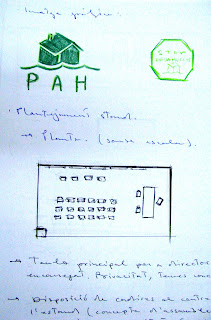 Imatge gràfica:
STOP
PAH
Plantejament stand.
→ Planta. (sense escala).
→ Taula principal per a director
encarregat. Privacitat, temes
→ Disposició de cadires al centre
l'estand (concepte d'assemblea